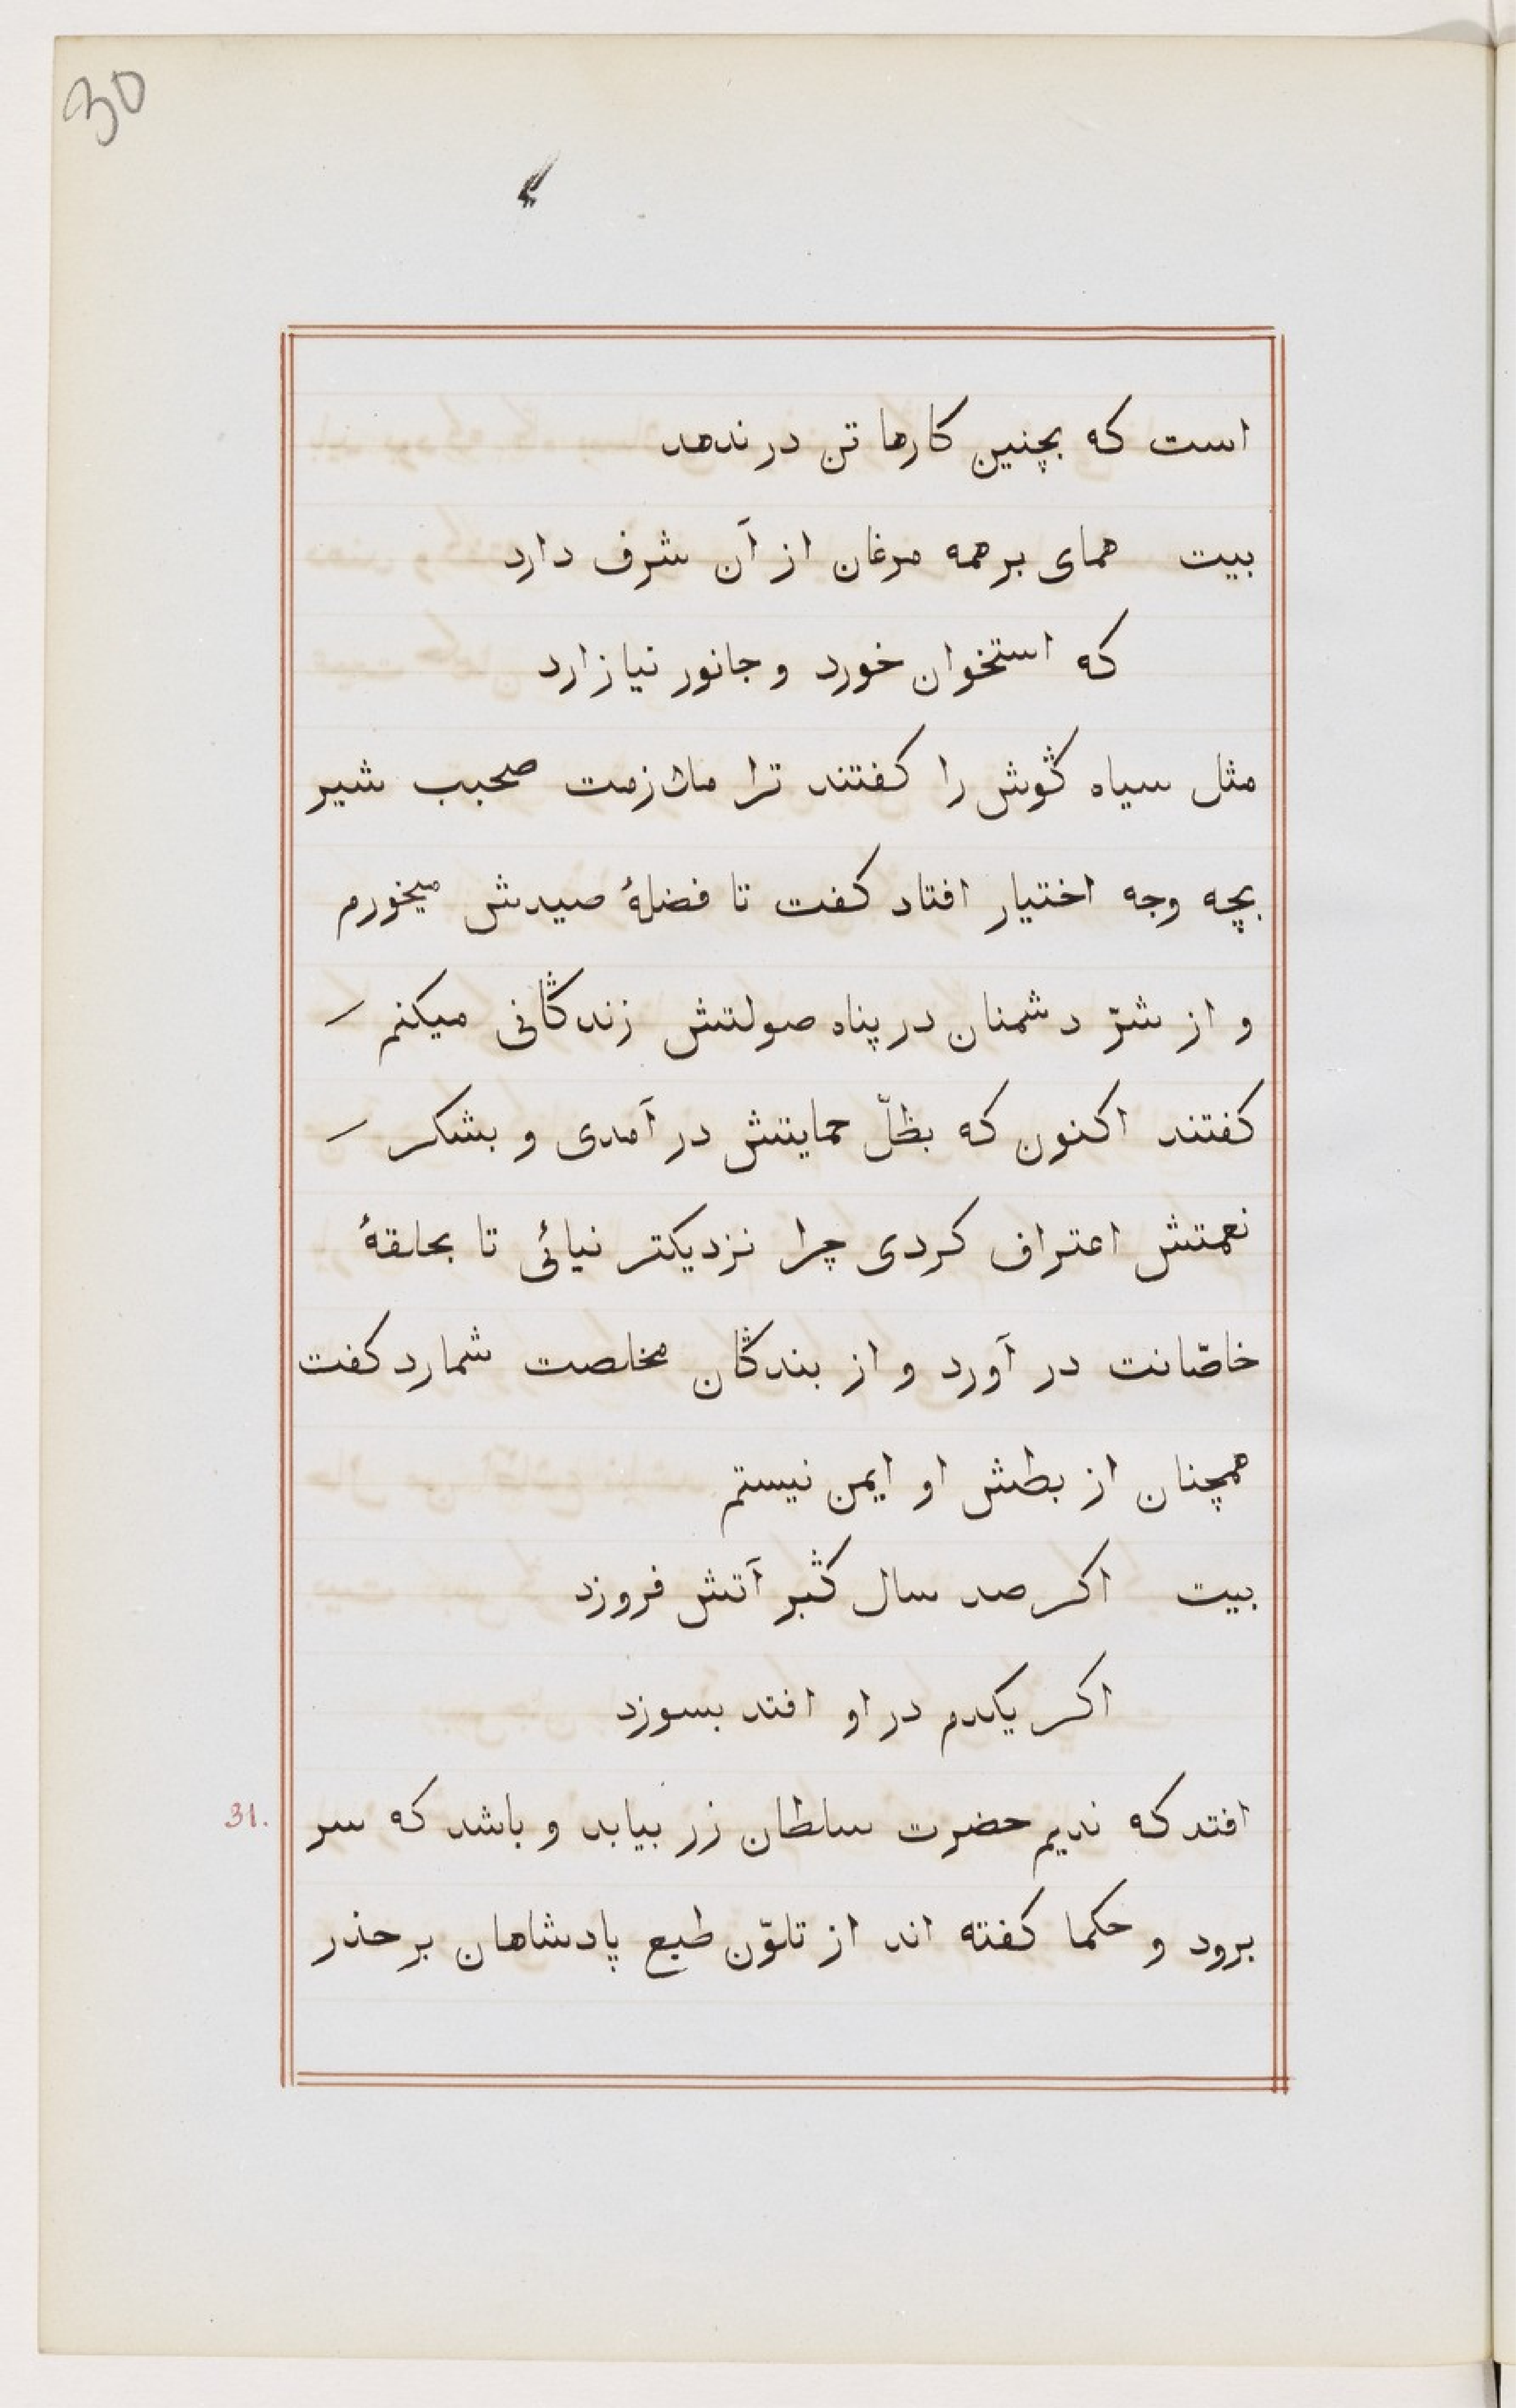 30
است که بچنین کارها تن در ندهد
بیت همای بر همه مرغان از آن شرف دارد
که استخوان خورد و جانور نیازارد
مثل سیاه گوش را کفتند ترا ملازمت صحبب شیر
بچه وجه اختیار افتاد کفت تا فضلهٔ صیدش میخورم
و از شرّ دشمنان در پناه صولتش زندگانی میکنم
کفتند اکنون که بظلّ حمایتش در آمدی و بشکر
نعمتش اعتراف کردی چرا نزدیکتر نیائی تا بحلقهٔ
خاصّانت در آورد و از بندگان مخلصت شمارد کفت
همچنان از بطش او ایمن نیستم
بیت اکر صد سال گبر آتش فروزد
اکر یکدم در او افتد بسوزد
31. افتد که ندیم حضرت سلطان زر بیابد و باشد که سر
برود و حکما کفته اند از تلوّن طبع پادشاهان بر حذر